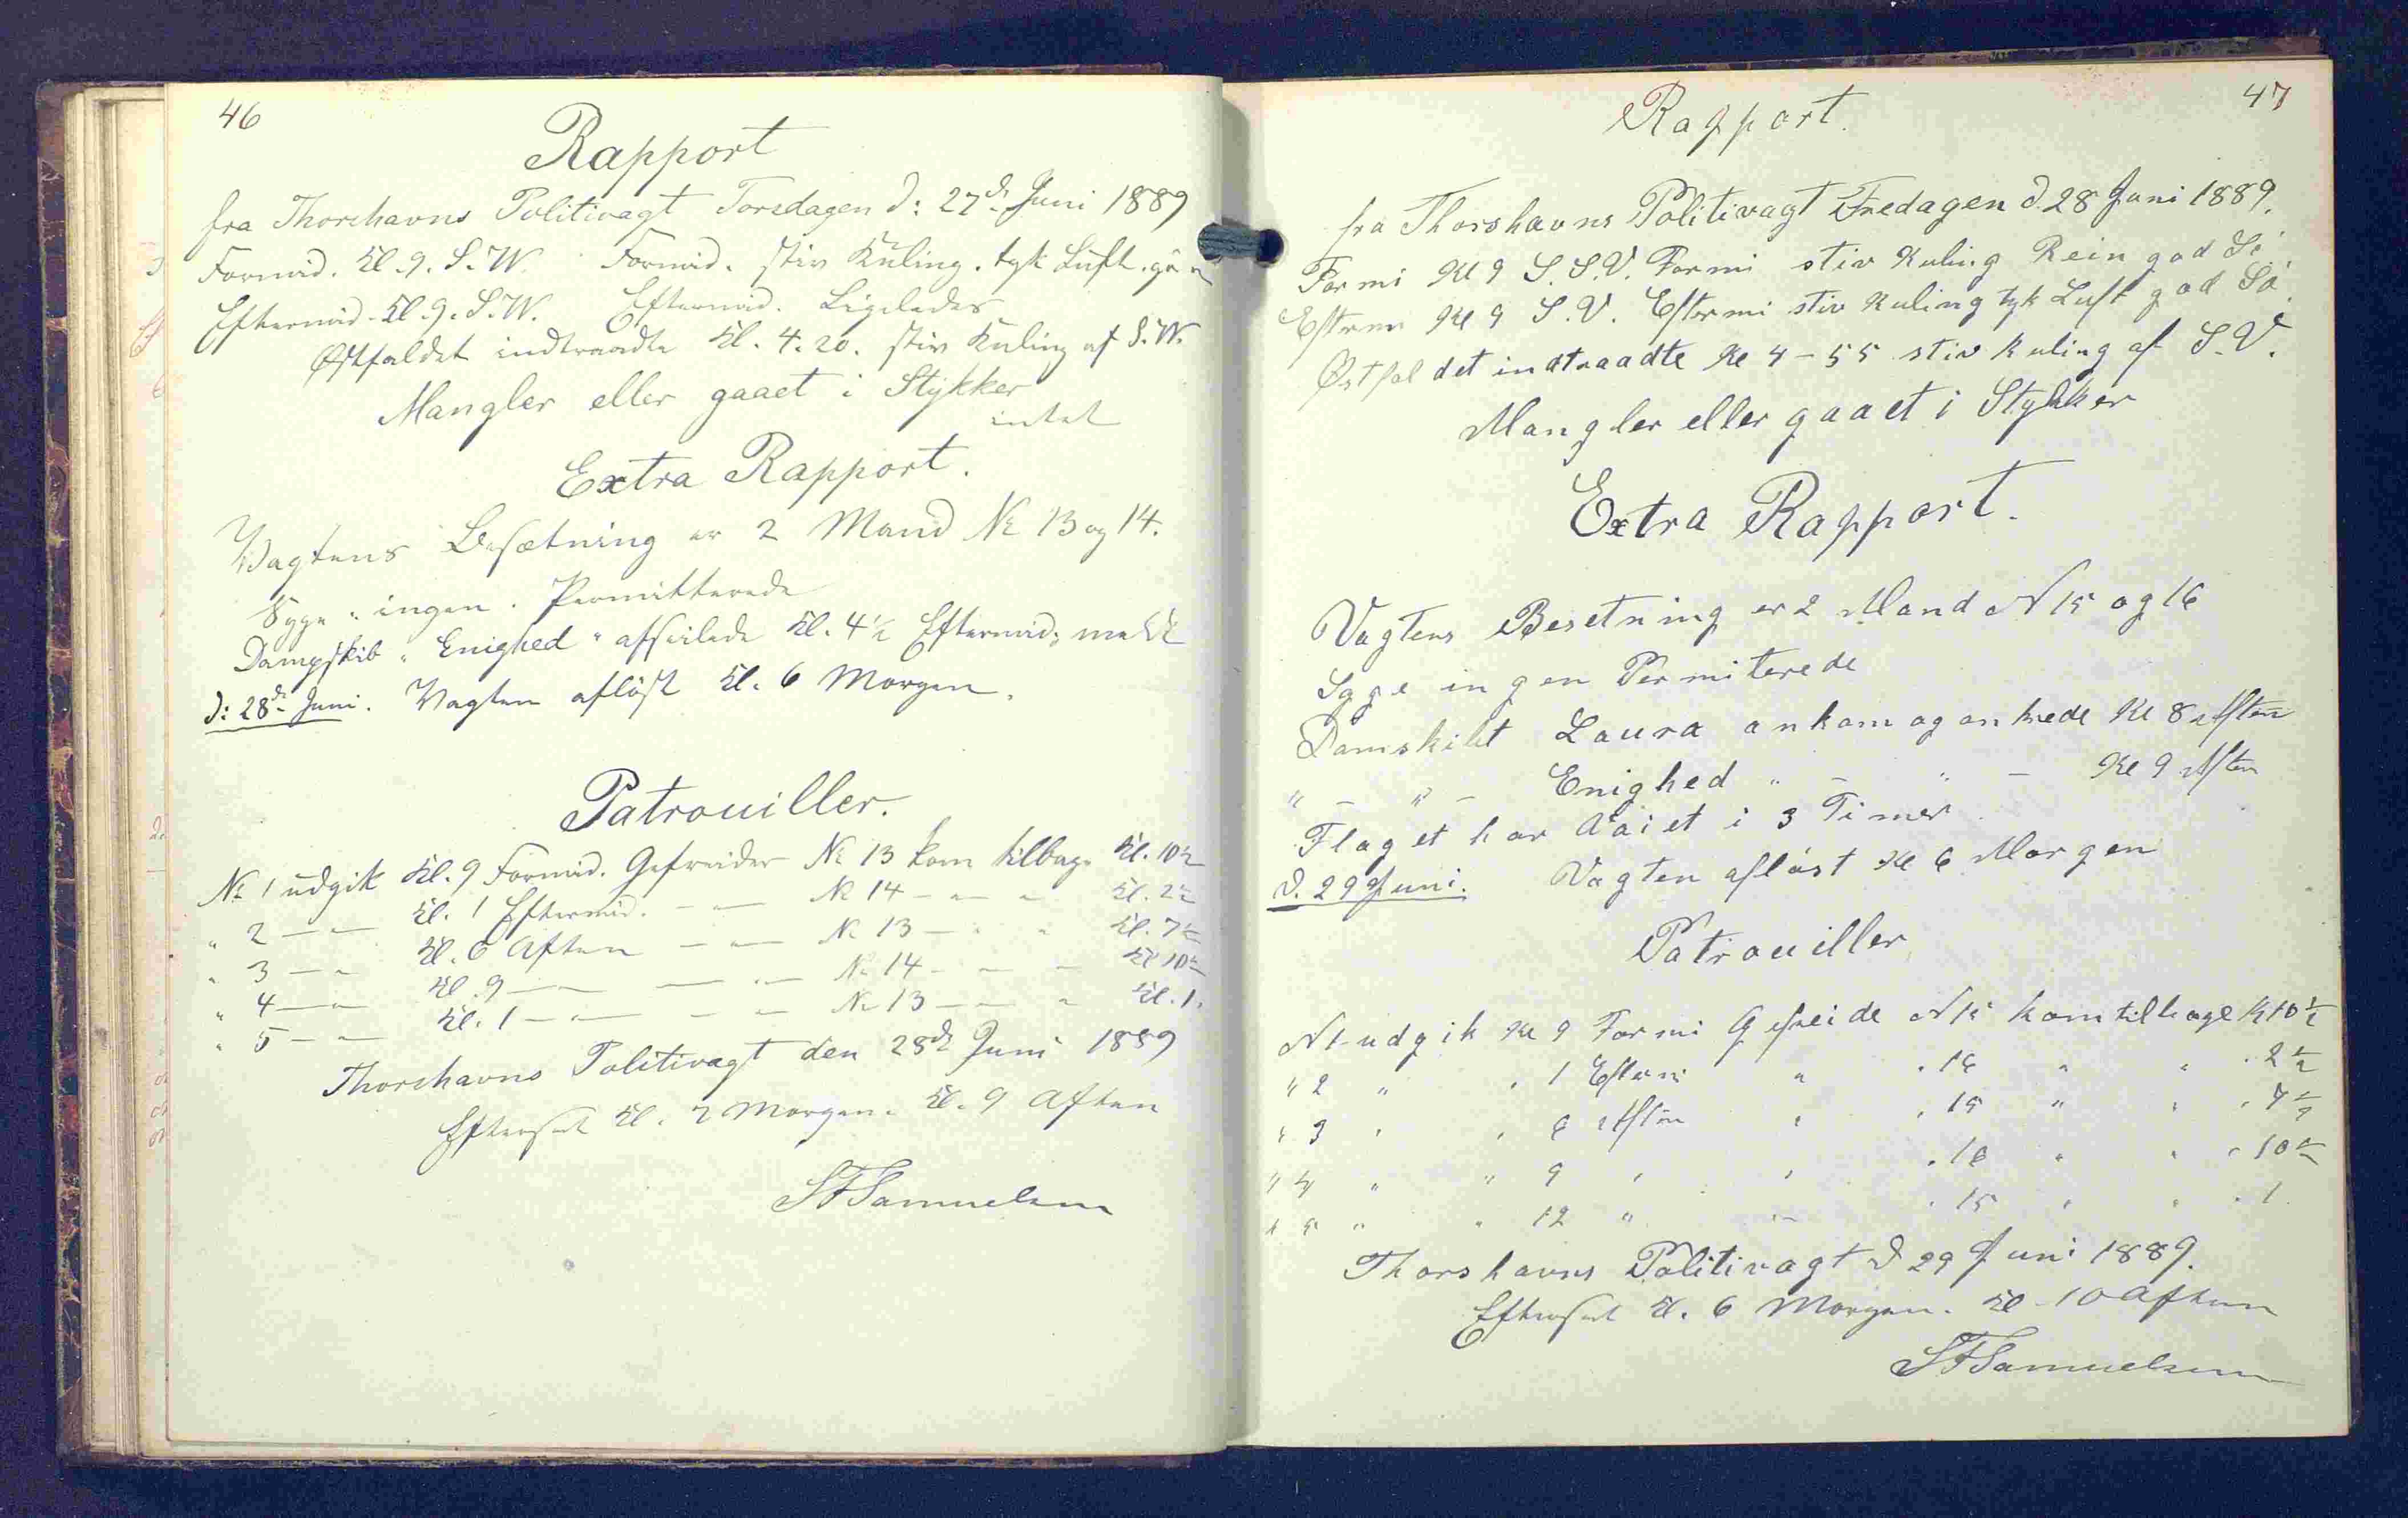 46
Rapport
fra Thorshavns Politivagt Torsdagen d: 27de Juni 1889
Formid. Kl. 9. S.W. Formid. stiv Kuling. tyk Luft.
Eftermid. Kl. 9. S.W. Eftermid. Ligeledes
Østfaldet indtraadte Kl. 4.20. stiv Kuling af S.W.
Mangler eller gaaet i Stykker
intet
Extra Rapport.
Vagtens Besætning er 2 Mand No 13 og 14.
Syge " ingen. Permitterede
Dampskib "Enighed" afseilede Kl. 4½ Eftermid;
d: 28de Juni. Vagten afløst Kl. 6 Morgen.
Patrouiller.
No 1 udgik Kl. 9 Formid. Gefreider No 13 kom tilbage Kl. 10½
" 2 — " — Kl. 1 Eftermid. — " — No 14 — " — " Kl. 2½
" 3 — " Kl. 6 Aften — " — No 13 — " " Kl. 7½
" 4 — " — Kl. 9 — " — — " — No 14 — " — Kl. 10½
" 5 — " — Kl. 1 — " — — " — No 13 — " — " Kl. 1.
Thorshavns Politivagt den 28de Juni 1889
Efterseet Kl. 7 Morgen. Kl. 9 Aften
SFSamuelsen
47
Rapport.
fra Thorshavns Politivagt Fredagen d. 28 Juni 1889.
Formi Kl 9 S.S.V. Formi stiv Kuling Rein god Sö.
Efterm Kl 9 S.V. Eftermi stiv Kuling tyk Luft god Sö.
Østfaldet indtraadte Kl 4-55 stiv kuling af S.V.
Mangler eller gaaet i Stykker
Extra Rapport.
Vagtens Besetning er 2 Mand N 15 og 16
Syge ingen Permiterede
Damskibt Laura ankom og ankrede Kl 8 Aften
" — " — Enighed " — " — Kl 9 Aften
Flaget har i 3 Timer
d. 29 Juni. Vagten afløst Kl 6 Morgen
Patrouiller
N 1 udgik Kl 9 Formi Gefreide N 15 kom tilbage Kl 10½
" 2 " " 1 Eftermi " " 16 " " " 2½
" 3 " " 6 Aften " " 15 " " " 7½
" 4 " " 9 " " " 16 " " " 10½
" 5 " " 12 " " " 15 " " " 1
Thorshavns Politivagt d 29 Juni 1889.
Efterseet Kl. 6 Morgen. Kl - 10 Aften
SFSamuelsen